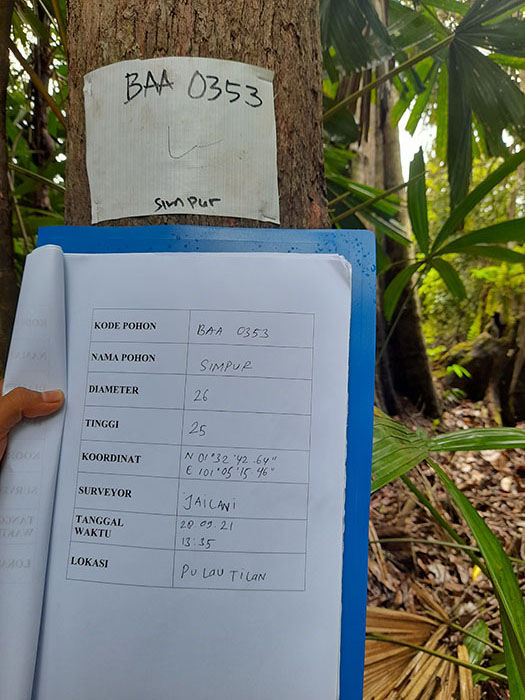 BAA 0353
simpur
KODE POHON BAA 0353
NAMA POHON SIMPUR
DIAMETER 26
TINGGI 25
KOORDINAT N 01°32'42.64"
E 101°05'15.46"
SURVEYOR JAILANI
TANGGAL 28.09.21
WAKTU 13:35
LOKASI PULAU TILAN